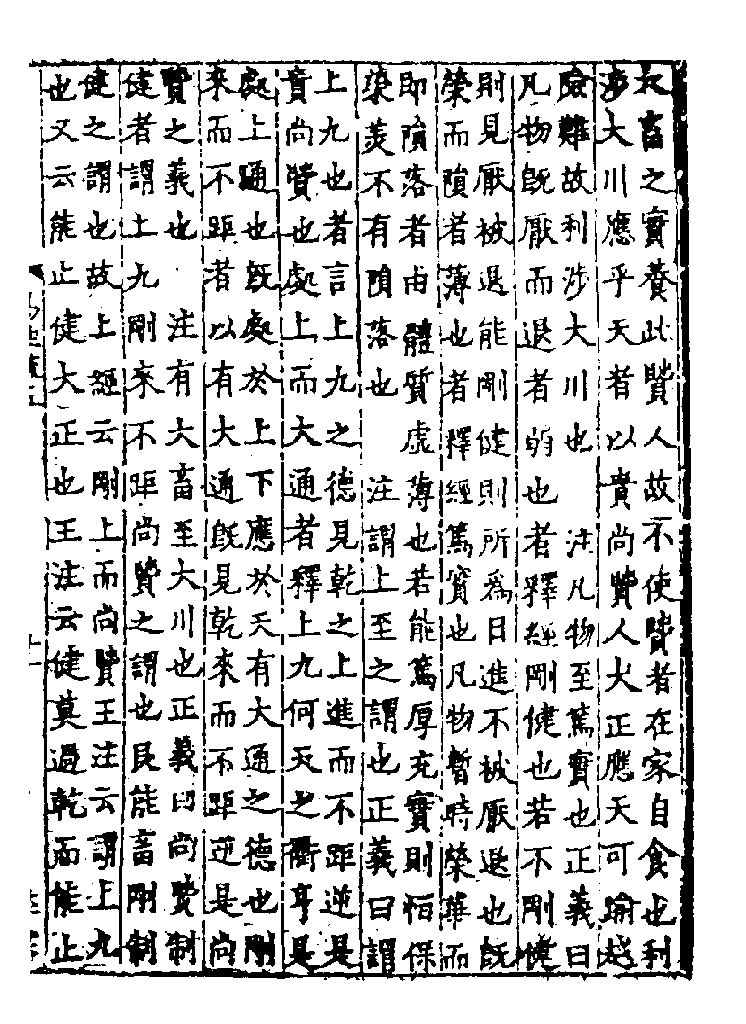 大畜之實養此賢人故不使賢者在家自食也利
涉大川應乎天者以貴尚賢人大正應天可踰越
險難故利涉大川也　注凡物至篤實也正義曰
凡物旣厭而退者弱也者釋經剛健也若不剛健
則見厭被退能剛健則所爲日進不被厭退也旣
榮而隕者薄也者釋經篤實也凡物暫時榮華而
即隕落者由體質虛薄也若能篤厚充實則恒保
榮美不有隕落也　注謂上至之謂也正義曰謂
上九也者言上九之德見乾之上進而不距逆是
貴尚賢也處上而大通者釋上九何天之衢亨是
處上通也旣處於上下應於天有大通之德也剛
來而不距者以有大通旣見乾來而不距逆是尚
賢之義也　注有大畜至大川也正義曰尚賢制
健者謂上九剛來不距尚賢之謂也艮能畜剛制
健之謂也故上經云剛上而尚賢王注云謂上九
也又云能止健大正也王注云健莫過乾而能止